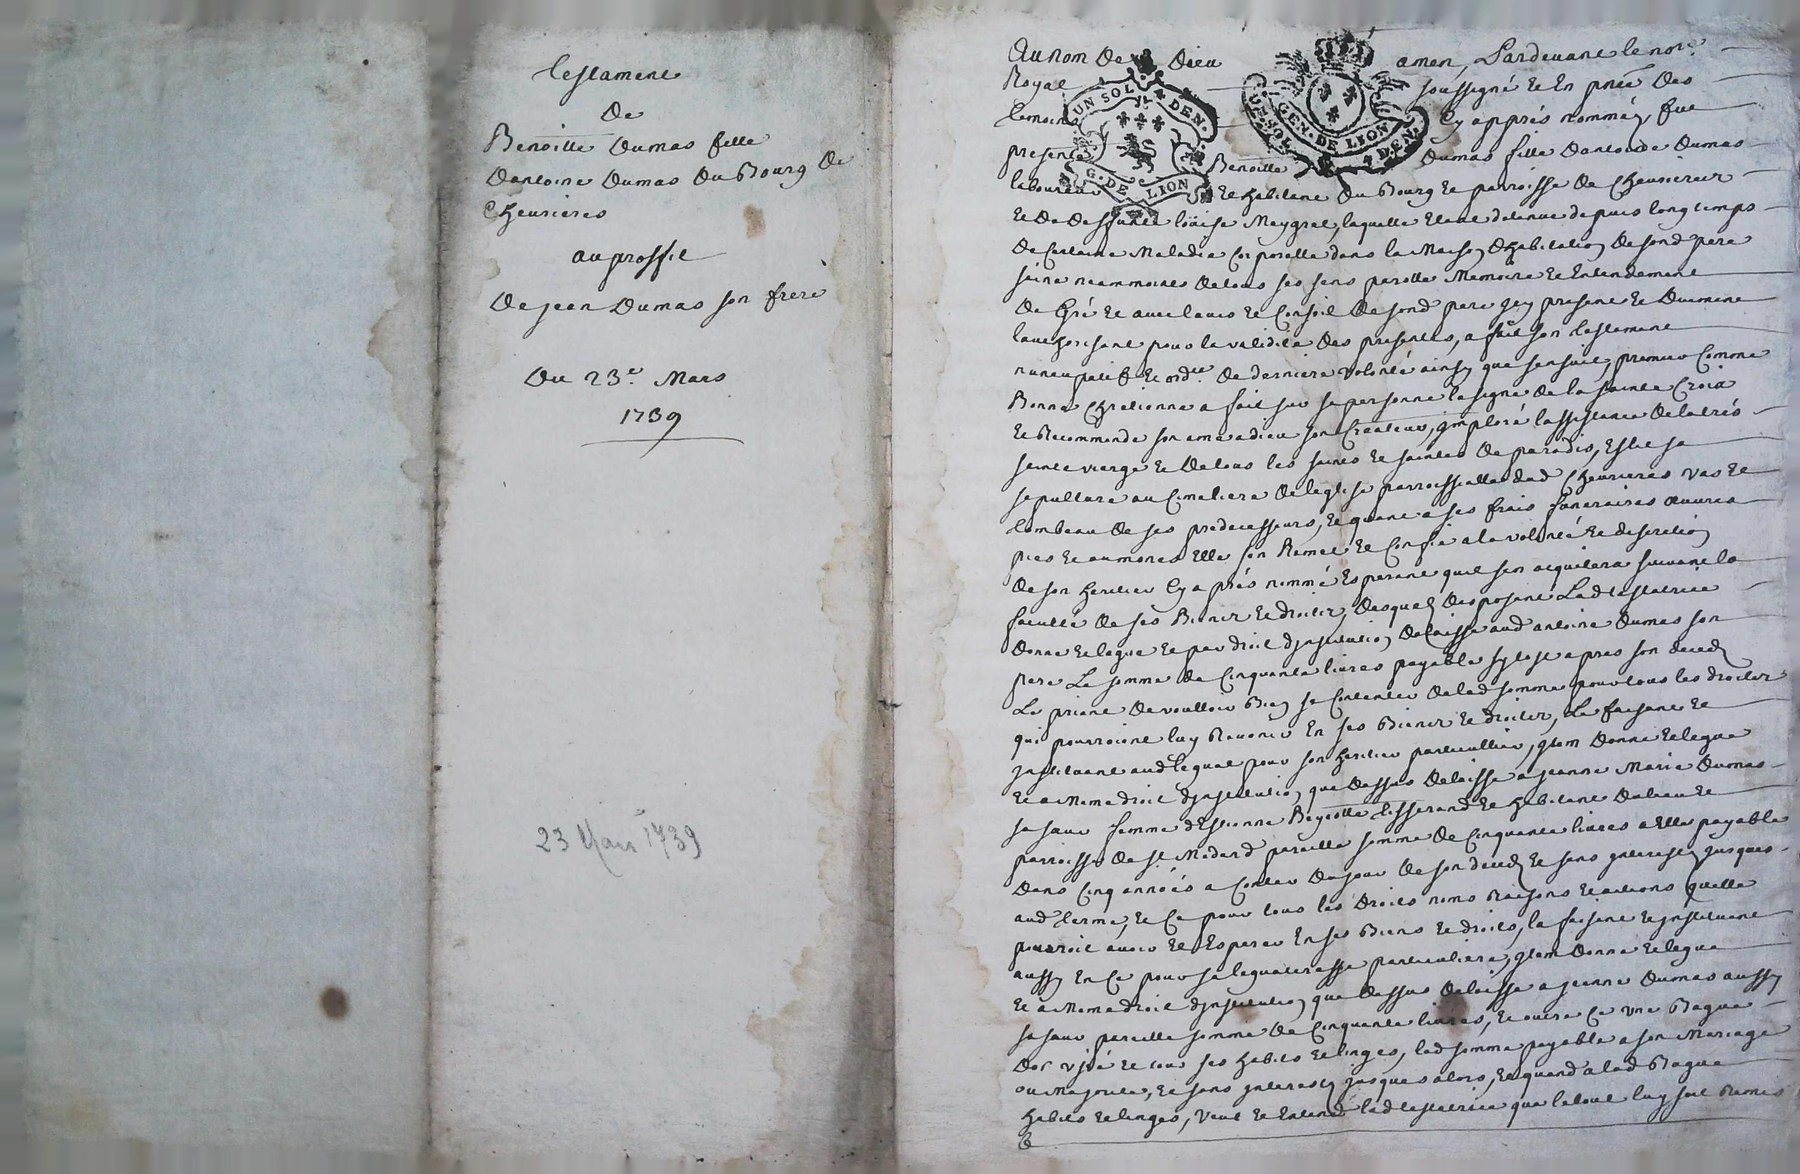 Testament
De
Benoitte Dumas fille
Dantoine Dumas Du Bourg De
Cheurieres
au proffit
De jean Dumas son frere
Du 23.e Mars
1739
23 Mars 1739
Au nom De Dieu amen, Pardevant le nore.
Royal soussigné Et En pnce Des
temoins Cy apprés nommés, fut
presente Benoitte Dumas fille Dantoine Dumas
laboureur Et habitant Du Bourg Et parroisse De Cheurieres
Et De Deffunte loüise Meygret, laquelle Etant detenue depuis longtemps
De Certaine Maladie Corporelle dans la Maison Dhabitation De sond pere
saine neammoints De tous ses sens parolle Memoire Et Entendement
De Gré Et avec lavis Et Conseil De sond pere jcy present Et Duement
lauthorisant pour la validité Des presentes, a fait son testament
nuncupatif Et ordre De derniere volonté ainsy que sensuit, premier Comme
Bonne Chretienne a fait sur sa personne le signe De la sainte Croix
Et Recommandé son ame a dieu son Createur, jmploré lassistance De la trés
sainte vierge Et De tous les saints Et saintes De paradis, Eslit sa
sepulture au Cimetiere De leglise parroissialle dud Cheurieres vas Et
tombeau De ses predecesseurs, Et quant a ses frais funeraires œuvres
pies Et aumones Elle sen Remet Et Confie a la volonté Et discretion
De son heritier Cy aprés nommé Esperant quil sen acquitera suivant la
faculté De ses Biens Et droits, Desquels Disposant Lad testatrice
Donne Et legue Et par droit djnstitution Delaisse aud antoine Dumas son
pere La somme De Cinquante livres payable sytost apres son decedz
Le priant De voulloir Bien se Contenter De lad somme pour tous les droits
qui pourroient luy Revenir En ses Biens Et droits, Le faisant Et
jnstituant aud legat pour son heritier particullier, jtem Donne Et legue
Et a Meme droit djnstitution que Dessus Delaisse a jeanne Marie Dumas
sa sœur femme dEstienne Beyiotte tisserand Et habitant Du lieu Et
parroisse De st Medard pareille somme De Cinquante livres a Elle payable
Dans Cinq années a Conter Du jour De son decedz Et sans jnterestz jusques
aud terme, Et Ce pour tous les Droits noms Raisons Et actions quelle
pourroit avoir Et Esperer En ses Biens Et droits, la faisant Et jnstituant
aussy En Ce pour sa leguateresse particuliere, jtem Donne Et legue
Et a Meme droit djnstitution que Dessus Delaisse a jeanne Dumas aussy
sa sœur pareille somme De Cinquante livres, Et outre Ce une Bague
Dor usée Et tous ses habits Et linges, lad somme payable a son Mariage
ou Majorité, Et sans jnterestz jusques alors, Et quand a lad Bague
habits Et linges, veut Et Entend lad testatrice que le tout luy soit Remis
UN SOL 4 DEN.
G. DE LION
UN SOL 4 DEN.
GEN. DE LION